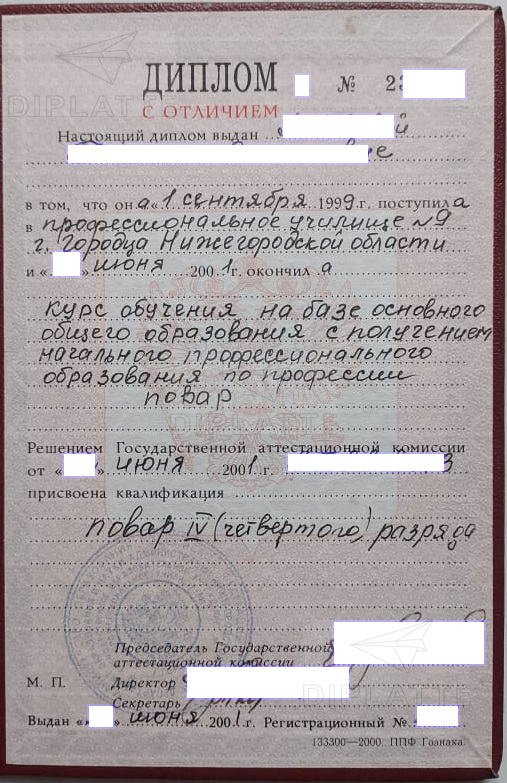 ДИПЛОМ № 2
С ОТЛИЧИЕМ
DIPLATTE
Настоящий диплом выдан
в том, что она «1 сентября 1999 г. поступила
в профессиональное училище №9
г. Городца Нижегородской области
и « » июня 2001 г. окончила
курс обучения на базе основного
общего образования с получением
начального профессионального
образования по профессии
повар
DIPLATTE
Решением Государственной аттестационной комиссии
от « » июня 2001 г.
присвоена квалификация
повар IV (четвертого) разряда
Председатель Государственной
аттестационной комиссии
М. П. Директор
DIPLATTE
Секретарь
Выдан « » июня 2001 г. Регистрационный №
133300—2000. ППФ Гознака.